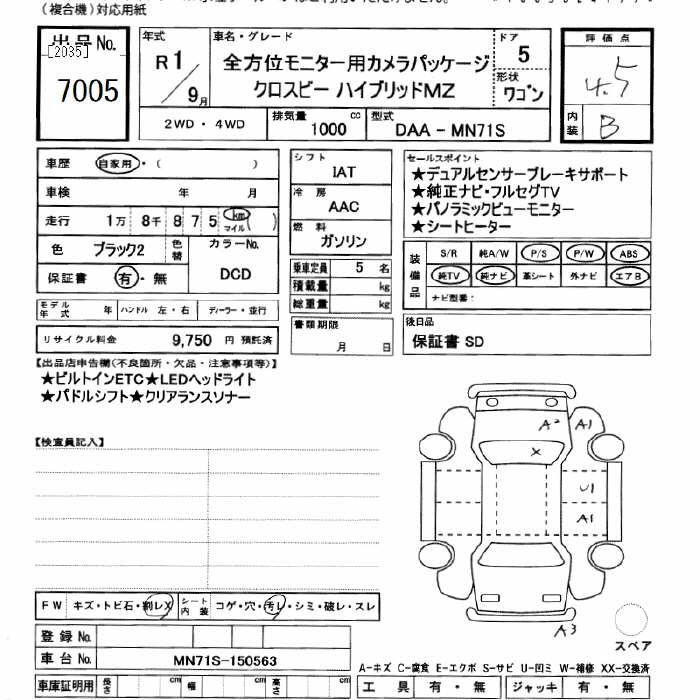 (複合機)対応用紙
出品No.
[2035]
7005
年式
R1/9月
車名・グレード
全方位モニター用カメラパッケージ
クロスビー ハイブリッドMZ
ドア
5
形状
ワゴン
評価点
4.5
内装
B
2WD・4WD
排気量
1000 cc
型式
DAA-MN71S
車歴 自家用・( )
車検 年 月
走行 1万 8千 8 7 5 km マイル ( )
色 ブラック2 色替
カラーNo.
DCD
保証書 有・無
シフト
IAT
冷房
AAC
燃料
ガソリン
乗車定員 5 名
積載量 kg
総重量 kg
セールスポイント
★デュアルセンサーブレーキサポート
★純正ナビ・フルセグTV
★パノラミックビューモニター
★シートヒーター
装備品
S/R 純A/W P/S P/W ABS
純TV 純ナビ 革シート 外ナビ エアB
ナビ型番:
モデル年式 年 ハンドル 左・右 ディーラー・並行
リサイクル料金 9,750 円 預託済
書類期限
月 日
後日品
保証書 SD
【出品店申告欄(不良箇所・欠品・注意事項等)】
★ビルトインETC★LEDヘッドライト
★パドルシフト★クリアランスソナー
【検査員記入】
A2 A1
X
U1
A1
A3
スペア
FW キズ・トビ石・割レX
シート内装 コゲ・穴・汚レ・シミ・破レ・スレ
登録No.
車台No. MN71S-150563
A-キズ C-腐食 E-エクボ S-サビ U-凹ミ W-補修 XX-交換済
車庫証明用 長さ cm 幅 cm 高さ cm
工具 有・無 ジャッキ 有・無